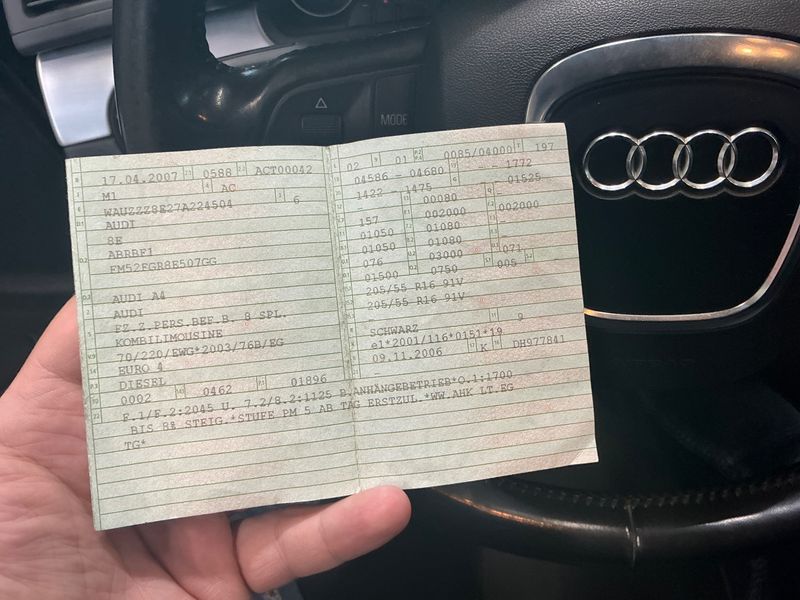 MODE
17.04.2007 0588 ACT00042
M1 AC
WAUZZZ8E27A224504 6
AUDI
8E
ABRBF1
FM52FGR8E507GG
AUDI A4
AUDI
FZ.Z.PERS.BEF.B. 8 SPL.
KOMBILIMOUSINE
70/220/EWG*2003/76B/EG
EURO 4
DIESEL
0002 0462 01896
02 01 0085/04000 197
04586 - 04680 - 1772
1422 - 1475 - 01525
00080
157 002000 002000
01050 01080
01050 01080
076 03000 071
01500 0750 005
205/55 R16 91V
205/55 R16 91V
SCHWARZ 9
e1*2001/116*0151*19
09.11.2006 K DH977841
F.1/F.2:2045 U. 7.2/8.2:1125 B.ANHÄNGEBETRIEB*O.1:1700
BIS 8% STEIG.*STUFE PM 5 AB TAG ERSTZUL.*WW.AHK LT.EG
TG*